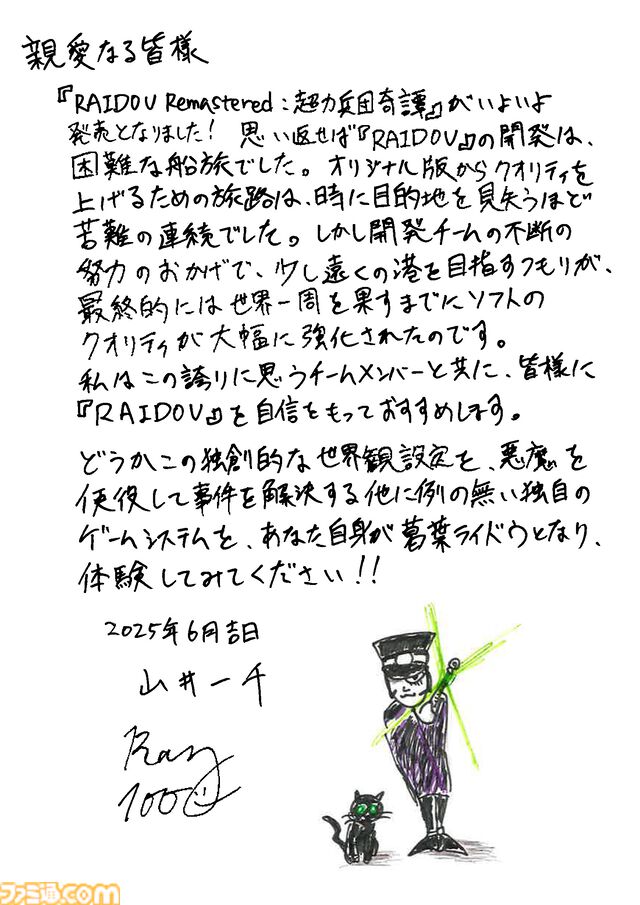 親愛なる皆様
『RAIDOU Remastered：超力兵団奇譚』がいよいよ
発売となりました！ 思い返せば『RAIDOU』の開発は、
困難な船旅でした。オリジナル版からクオリティを
上げるための旅路は、時に目的地を見失うほど
苦難の連続でした。しかし開発チームの不断の
努力のおかげで、少し遠くの港を目指すつもりが、
最終的には世界一周を果すまでにソフトの
クオリティが大幅に強化されたのです。
私はこの誇りに思うチームメンバーと共に、皆様に
『RAIDOU』を自信をもっておすすめします。
どうかこの独創的な世界観設定を、悪魔を
使役して事件を解決する他に例の無い独自の
ゲームシステムを、あなた自身が葛葉ライドウとなり、
体験してみてください!!
2025年6月吉日
山井一千
ファミ通.com